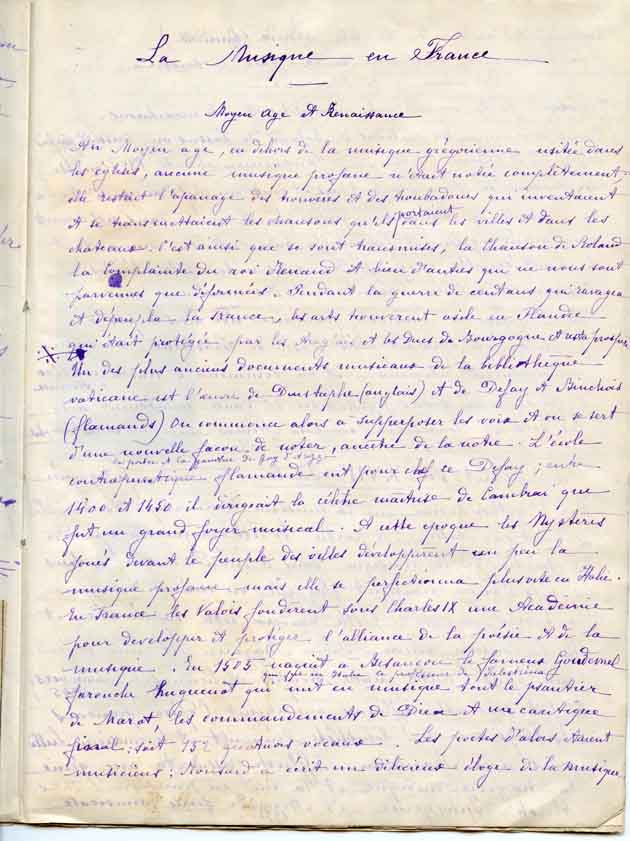 La Musique en France
Moyen age et Renaissance
Au Moyen age, en dehors de la musique grégorienne usitée dans
les églises, aucune musique profane n'était notée complètement.
elle restait l'apanage des trouvères et des troubadours qui inventaient
et se transmettaient les chansons qu'ils portaient dans les villes et dans les
chateaux. C'est ainsi que se sont transmises, la Chanson de Roland
la Complainte du roi Renaud et bien d'autres qui ne nous sont
parvenues que déformées. Pendant la guerre de cent ans qui ravagea
et dépeupla la France, les arts trouvèrent asile en Flandre
qui était protégée par les Anglais et les Ducs de Bourgogne et resta prospère
Un des plus anciens documents musicaux de la bibliothèque
vaticane est l'œuvre de Dunstaphe (anglais) et de Defay et Binchois
(flamands) On commence alors a supperposer les voix et on se sert
d'une nouvelle façon de noter, ancêtre de la notre. L'école
contrapuntique flamande ont pour chef ce Defay; entre
1400 et 1450 il dirigeait la célèbre maitrise de Cambrai que
fut un grand foyer musical. A cette epoque les Mystères
joués devant le peuple des villes développèrent un peu la
musique profane mais elle se perfectionna plus vite en Italie.
En France les Valois fonderent sous Charles IX une Académie
pour developper et protéger l'alliance de la poésie et de la
musique. En 1505 naquit a Besancon le fameux Goudimel
farouche huguenot qui mit en musique tout le psautier
de Marot, les commandements de Dieu et un cantique
final; soit 152 quatuors vocaux. Les poetes d'alors étaient
musiciens; Ronsard a écrit un délicieux éloge de la musique,